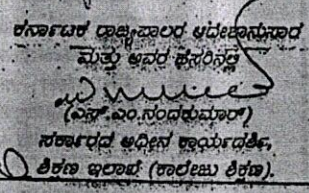 ಕರ್ನಾಟಕ ರಾಜ್ಯಪಾಲರ ಆದೇಶಾನುಸಾರ
ಮತ್ತು ಅವರ ಹೆಸರಿನಲ್ಲಿ
(ಎಸ್.ಎಂ.ನಂದಕುಮಾರ್)
ಸರ್ಕಾರದ ಅಧೀನ ಕಾರ್ಯದರ್ಶಿ,
ಶಿಕ್ಷಣ ಇಲಾಖೆ (ಕಾಲೇಜು ಶಿಕ್ಷಣ).